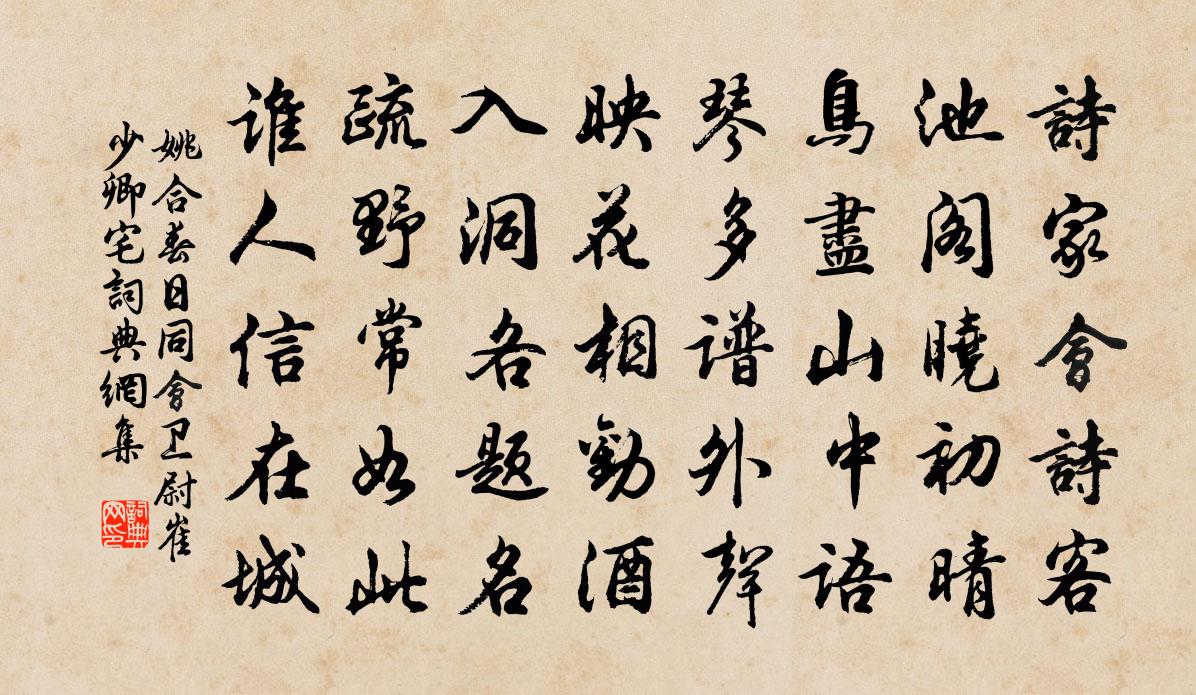 詩家會詩客
池阁曉初晴
鳥盡山中語
琴多谱外聲
映花相勸酒
入洞各題名
疏野常如此
谁人信在城
姚合春日同會卫尉崔
少卿宅詞典網集
詞典
网印